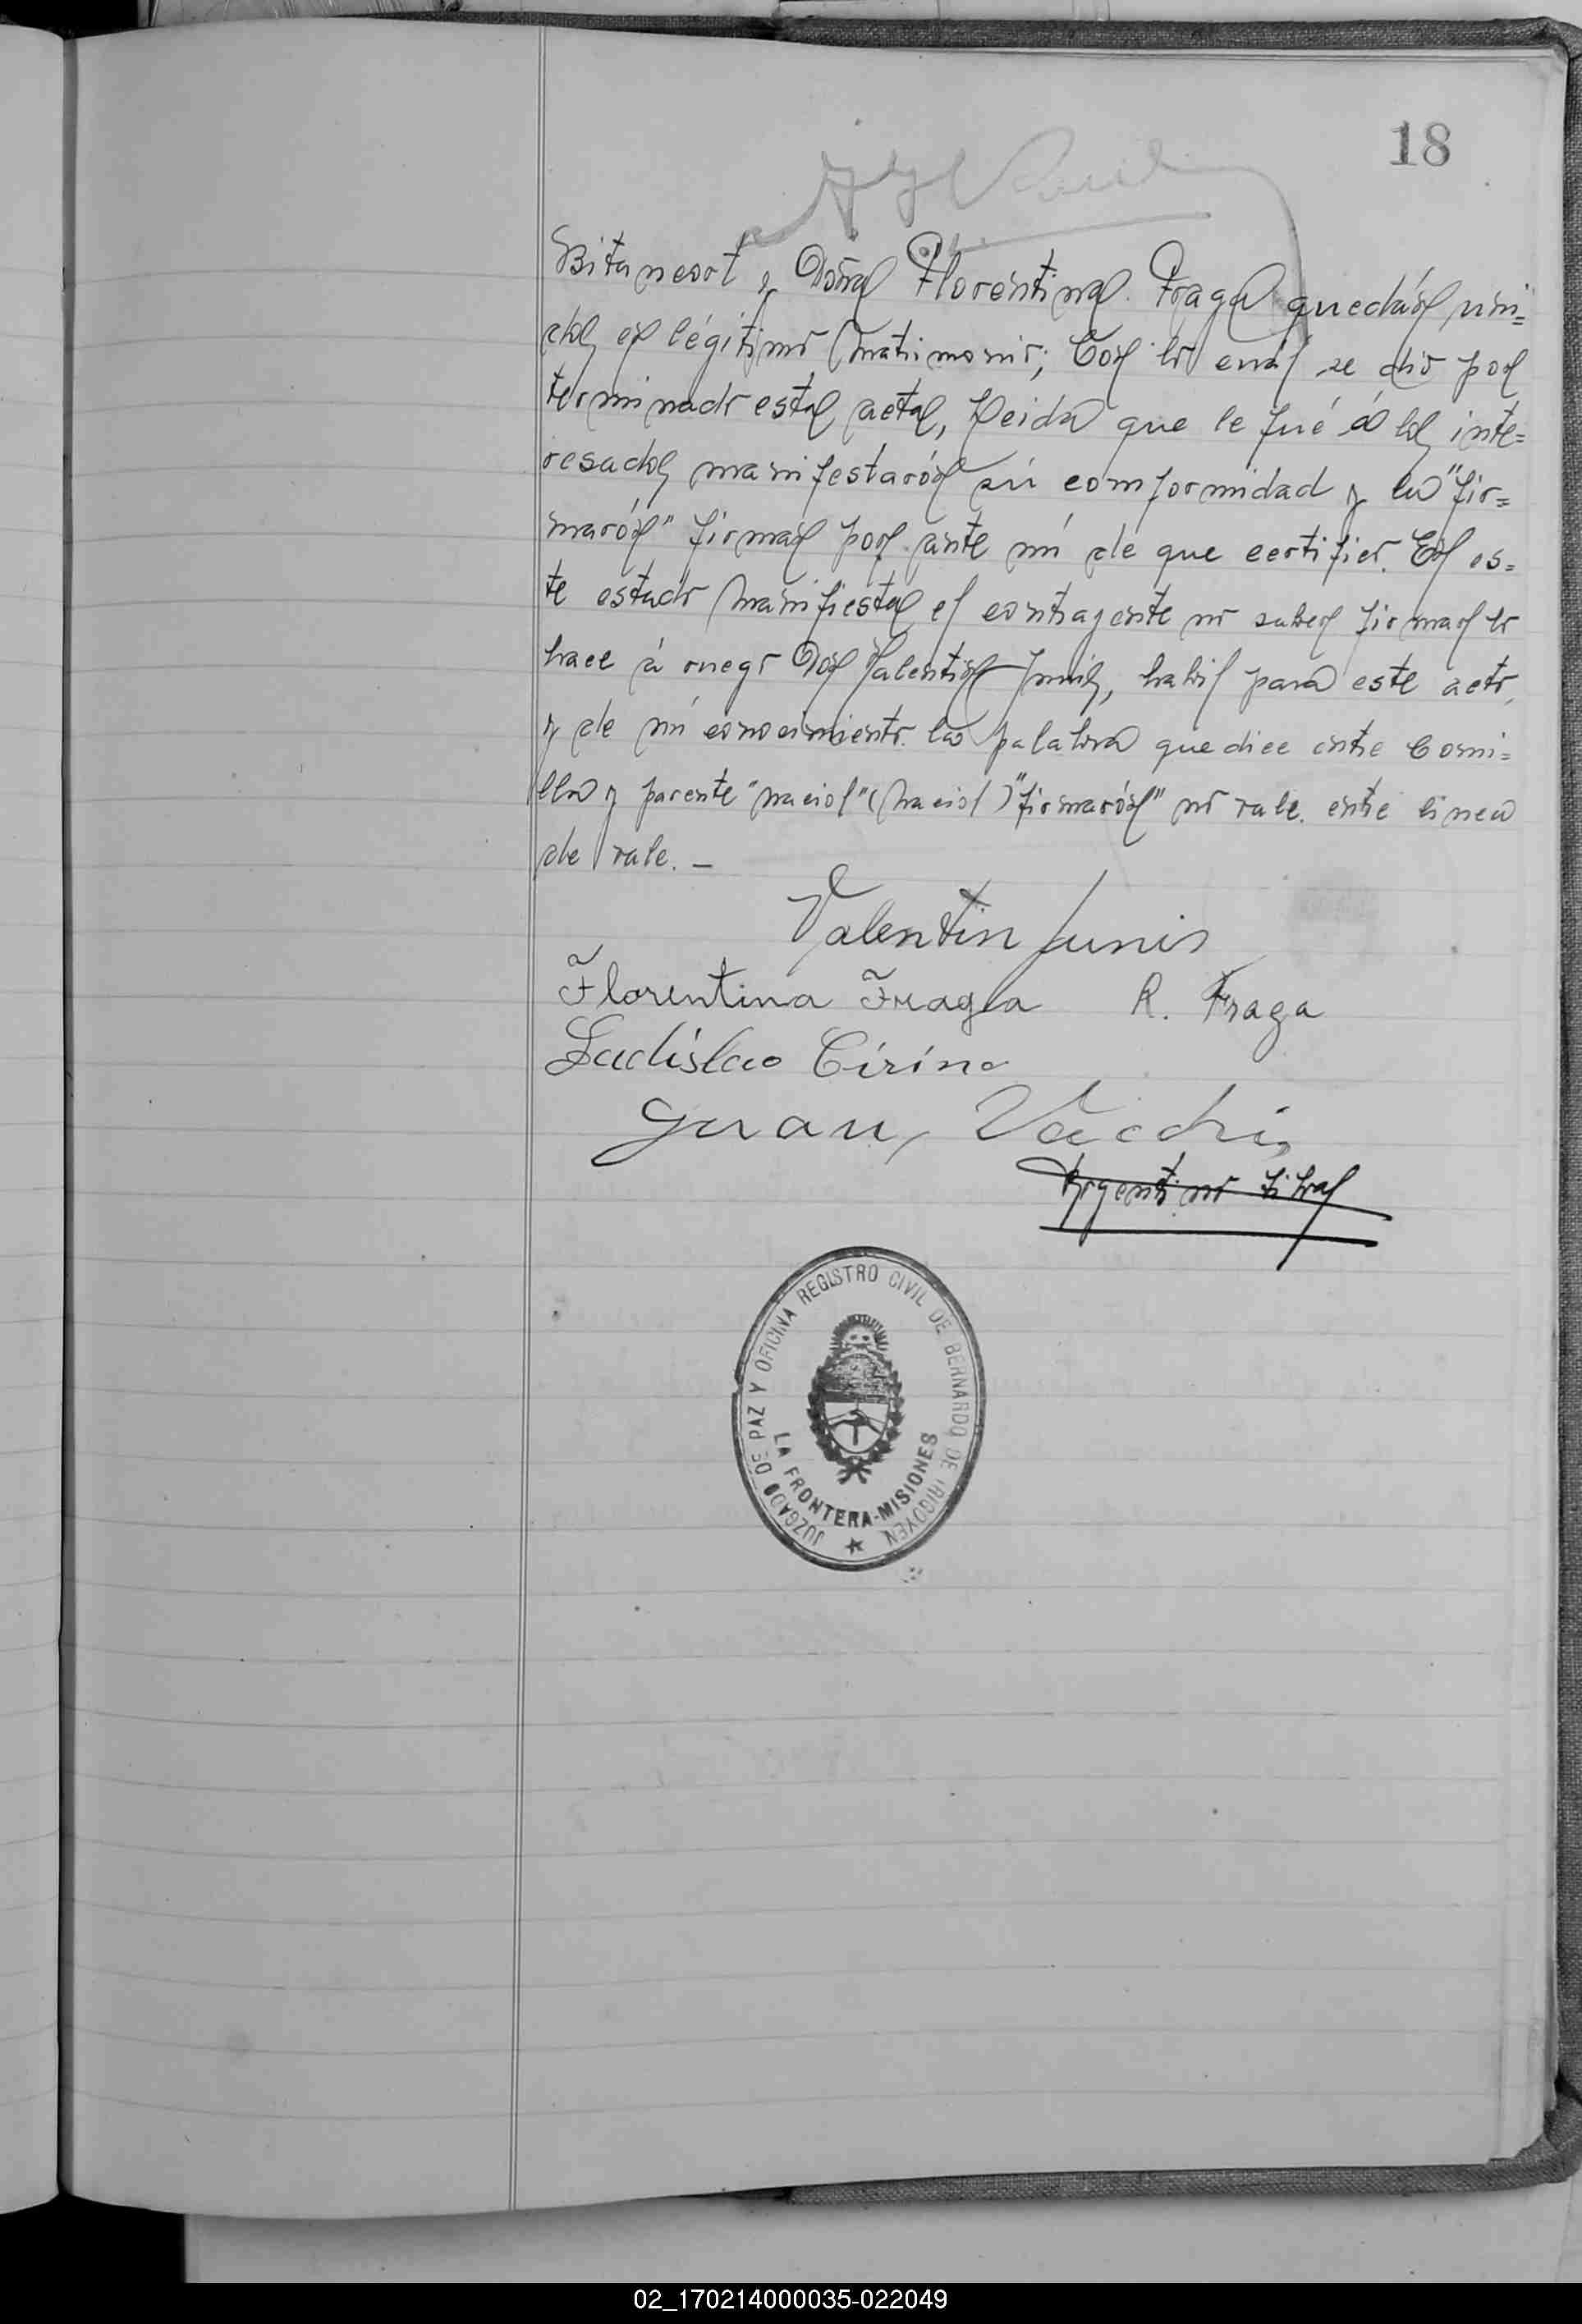 18
Bitancort y Doña Florentina Fraga quedán uni=
dos en légitimo Matrimonio; Con lo cuál se dió por
terminado esta acta, Leida que le fué á los inte=
resados manifestarón sú comformidad y la "fir=
marón" firman por ante mí de que certifico. En es=
te estado Manifiesta el contrayente no saber firmar lo
hace á ruego Don Valentin Junis, habil para este acto,
y de mí conocimiento. la palabra que dice entre Comi=
lla y parente "naciol" (naciol) "firmarón" no vale. entre linea
de vale. —
Valentin Junis
Florentina Fraga R. Fraga
Ladislao Cirino
Juan Vacchi
Argentino
JUZGADO DE PAZ Y OFICINA REGISTRO CIVIL DE BERNARDO DE IRIGOYEN
LA FRONTERA-MISIONES
02_170214000035-022049